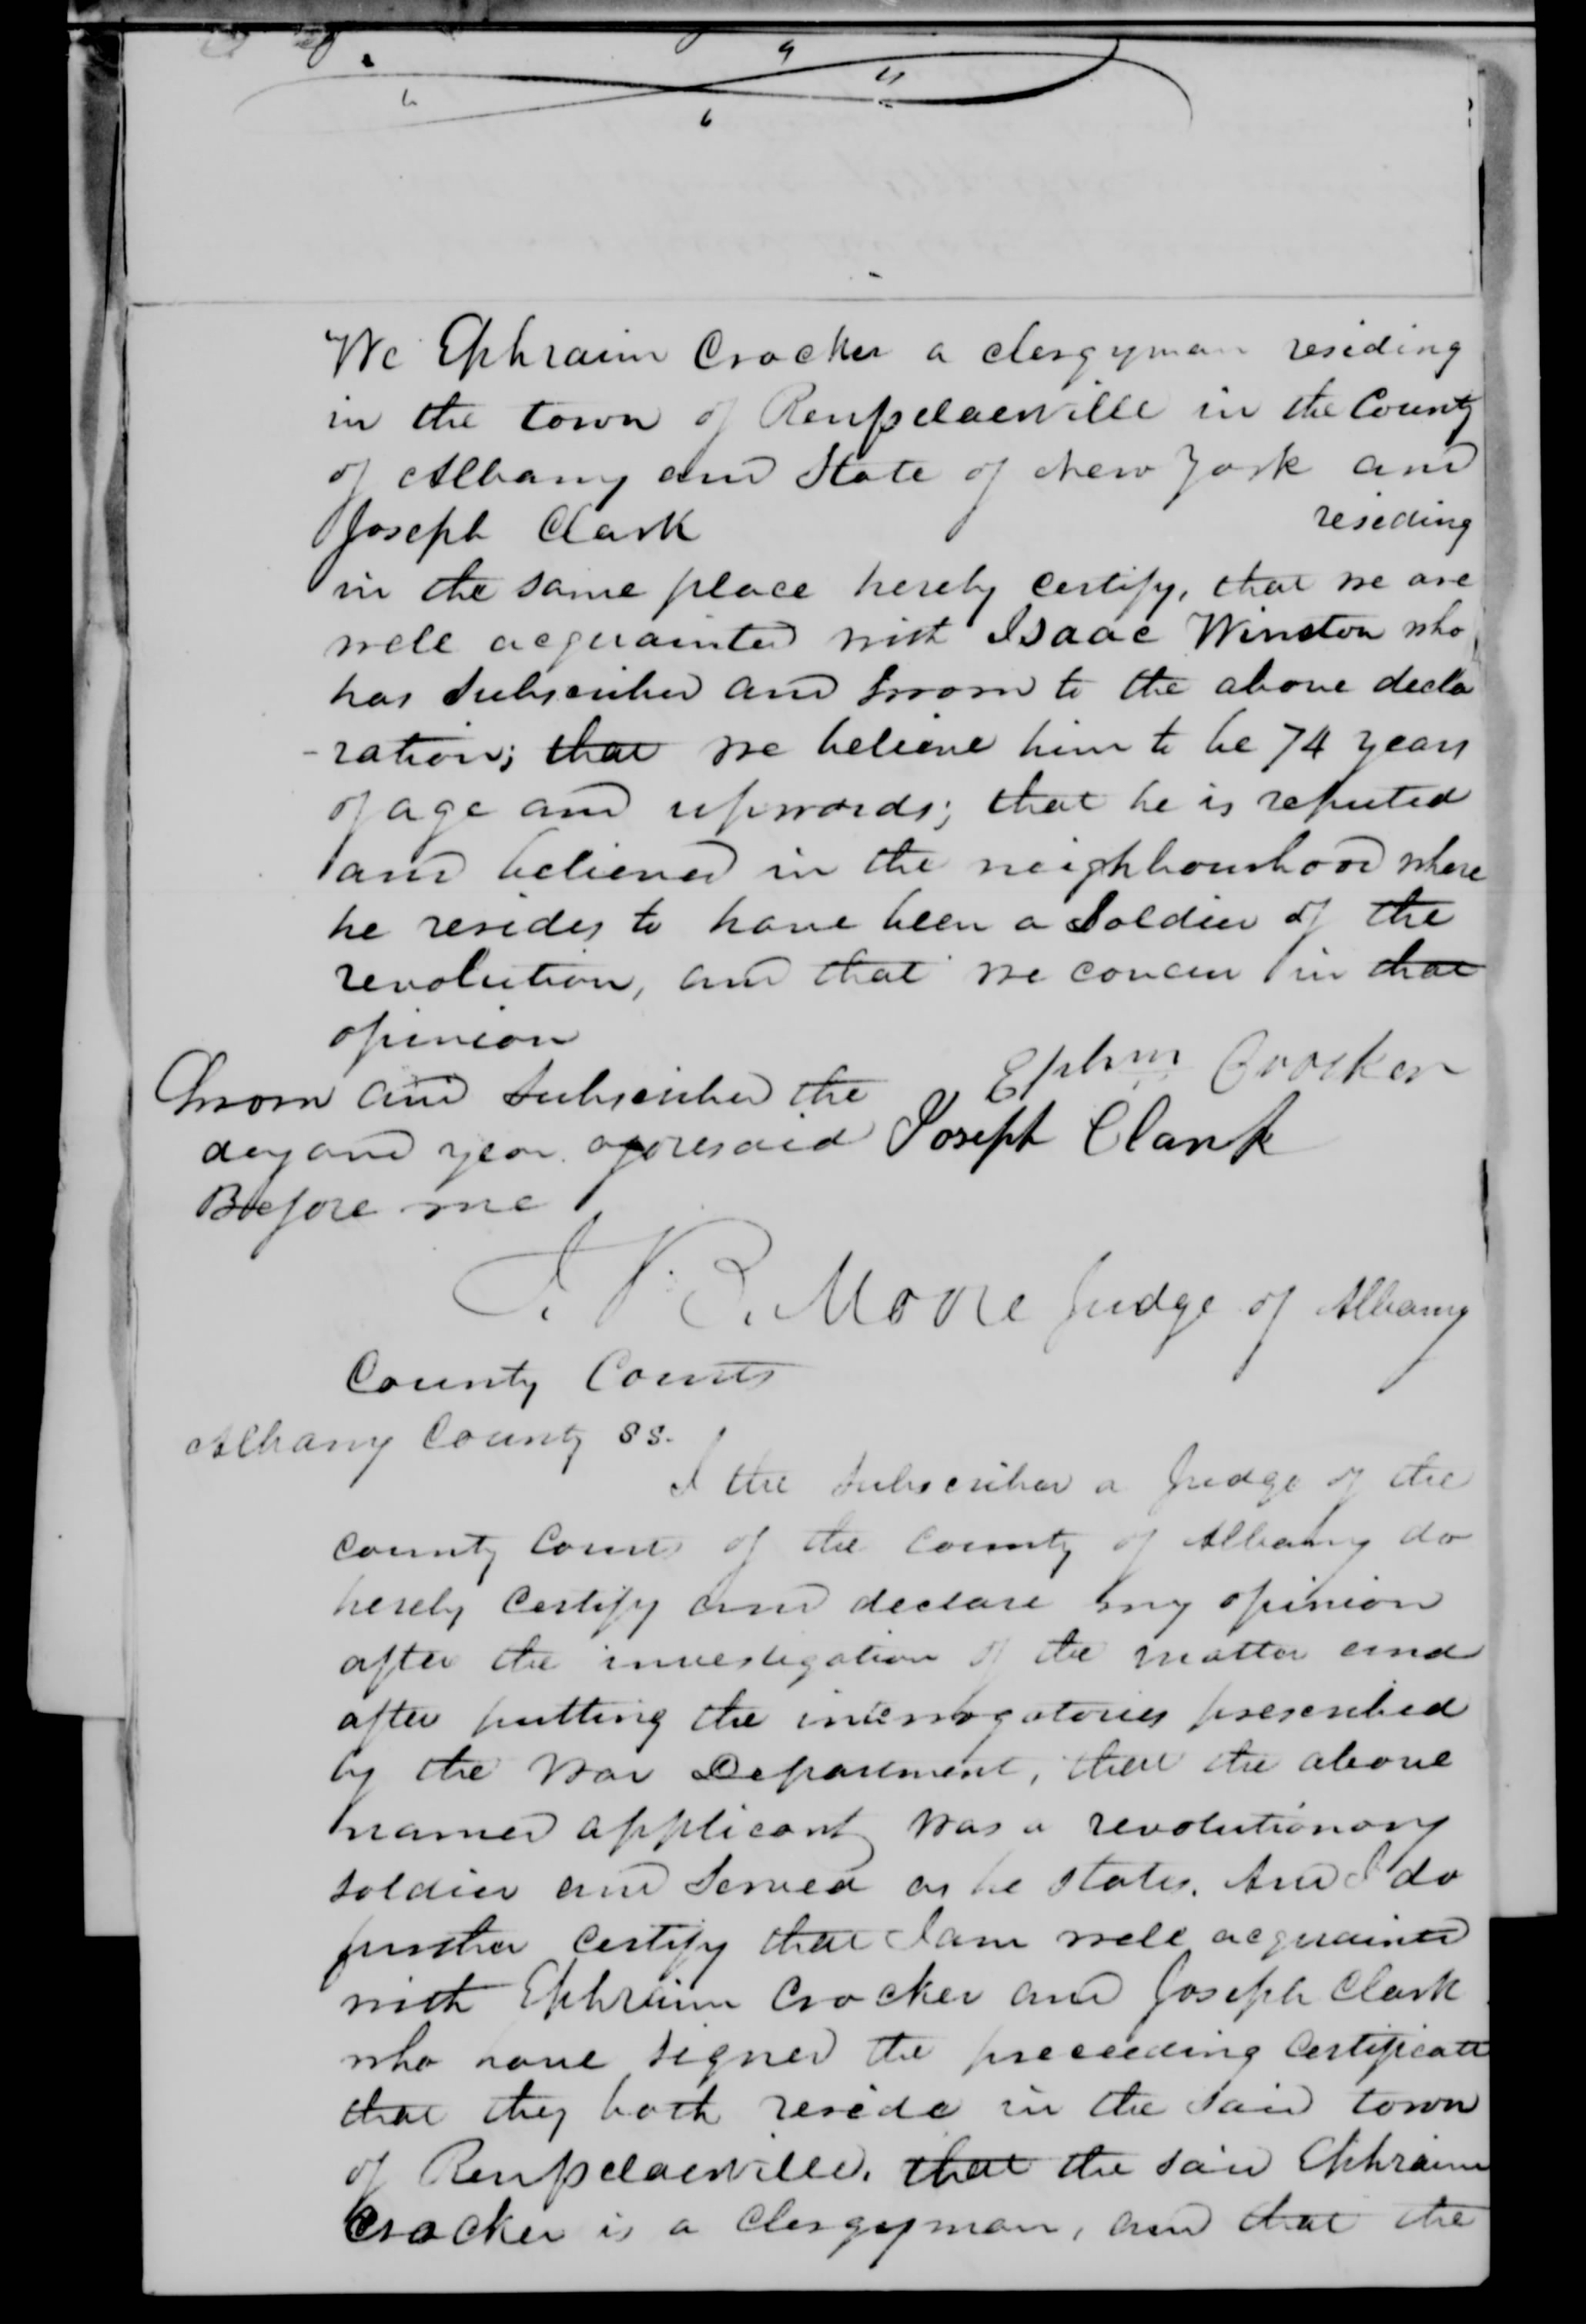 We Ephraim Crocker a clergyman residing
in the town of Rensselaerville in the County
of Albany and State of New York and
Joseph Clark residing
in the same place hereby certify, that we are
well acquainted with Isaac Winston who
has subscribed and sworn to the above decla
-ration; that we believe him to be 74 years
of age and upwards; that he is reputed
and believed in the neighbourhood where
he resides to have been a Soldier of the
revolution, and that we concur in that
opinion
Ephm Crocker
Sworn and subscribed the
day and year aforesaid Joseph Clark
Before me
Moore Judge of Albany
County Courts
Albany County SS.
I the subscriber a Judge of the
county Courts of the County of Albany do
hereby certify and declare my opinion
after the investigation of the matter and
after putting the interrogatories prescribed
by the War Department, that the above
named applicant was a revolutionary
soldier and served as he states. And I do
further certify that I am well acquainted
with Ephraim Crocker and Joseph Clark
who have signed the preceeding certificate
that they both reside in the said town
of Rensselaerville, that the said Ephraim
Crocker is a Clergyman, and that the